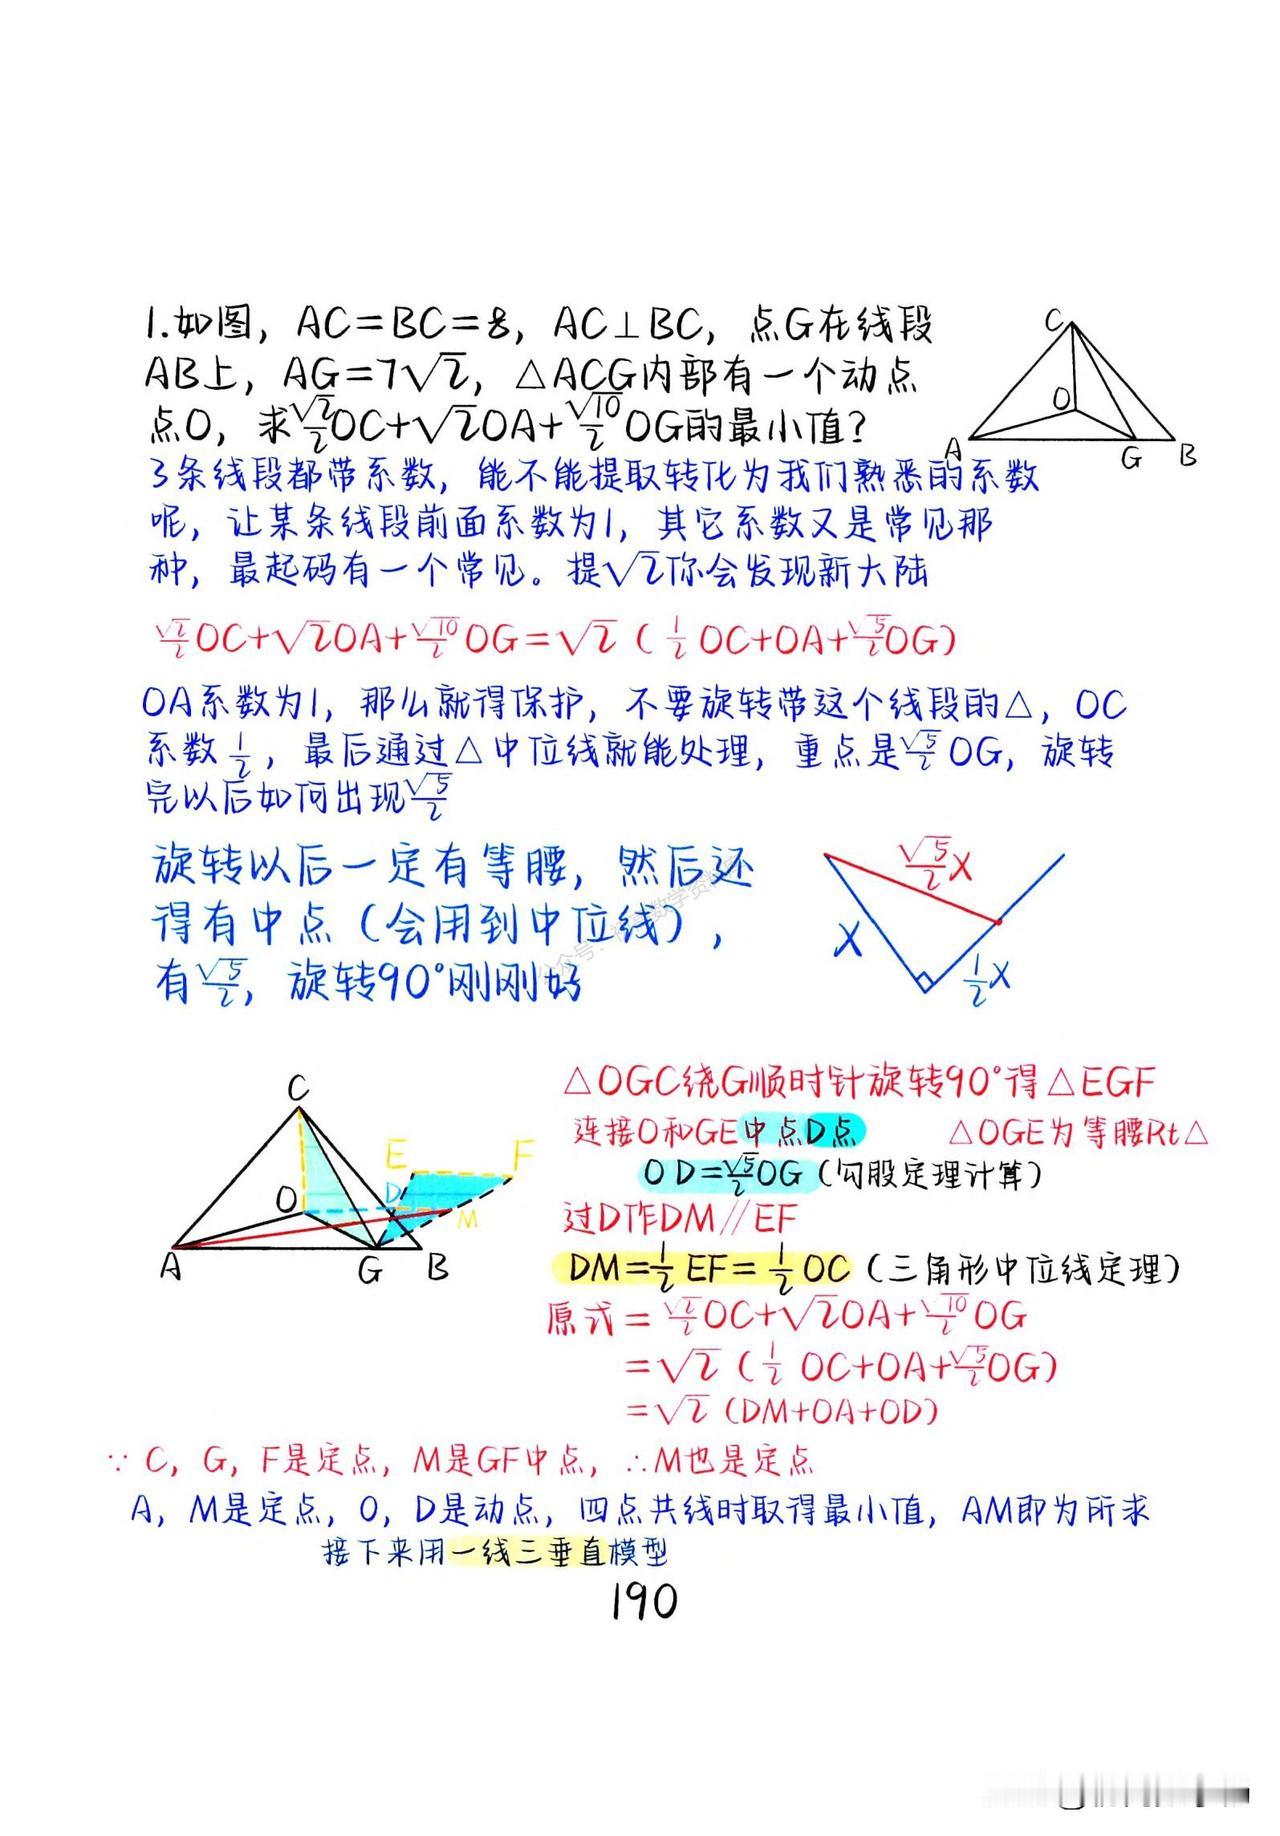 1.如图，AC=BC=8，AC⊥BC，点G在线段
AB上，AG=7√2，△ACG内部有一个动点
点O，求√2/2OC+√2OA+√10/2OG的最小值？
C
O
A
G
B
3条线段都带系数，能不能提取转化为我们熟悉的系数
呢，让某条线段前面系数为1，其它系数又是常见那
种，最起码有一个常见。提√2你会发现新大陆
√2/2OC+√2OA+√10/2OG=√2（1/2OC+OA+√5/2OG）
OA系数为1，那么就得保护，不要旋转带这个线段的△，OC
系数1/2，最后通过△中位线就能处理，重点是√5/2OG，旋转
完以后如何出现√5/2
旋转以后一定有等腰，然后还
得有中点（会用到中位线），
有√5/2，旋转90°刚刚好
√5/2X
X
1/2X
C
E
F
O
D
M
A
G
B
△OGC绕G顺时针旋转90°得△EGF
连接O和GE中点D点 △OGE为等腰Rt△
OD=√5/2OG（勾股定理计算）
过D作DM∥EF
DM=1/2EF=1/2OC（三角形中位线定理）
原式=√2/2OC+√2OA+√10/2OG
=√2（1/2OC+OA+√5/2OG）
=√2（DM+OA+OD）
∵C，G，F是定点，M是GF中点，∴M也是定点
A，M是定点，O，D是动点，四点共线时取得最小值，AM即为所求
接下来用一线三垂直模型
190